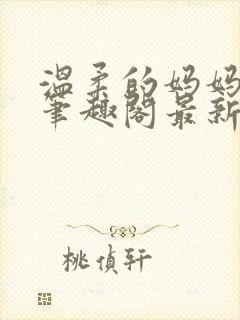 温柔的妈妈
笔趣阁最新
桃侦轩